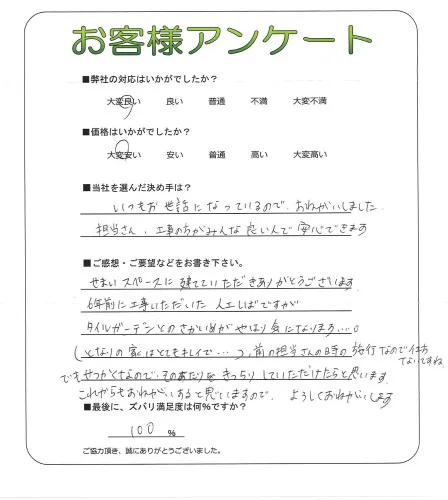 お客様アンケート
■弊社の対応はいかがでしたか？
大変良い 良い 普通 不満 大変不満
■価格はいかがでしたか？
大変安い 安い 普通 高い 大変高い
■当社を選んだ決め手は？
いつもお世話になっているので、おねがいしました
担当さん、工事の方がみんな良い人で安心できます
■ご感想・ご要望などをお書き下さい。
せまいスペースに建てていただきありがとうございます
6年前に工事いただいた人工しばですが
タイルガーデンとのさかいめがやはり気になります…。
(となりの家はとてもキレイで… 前の担当さんの時の施行なので仕方ないですね
でもせっかくなので、そのあたりをきっちりしていただけたらと思います
これからもおねがいすると思っていますので、よろしくおねがいします
■最後に、ズバリ満足度は何％ですか？
100 %
ご協力頂き、誠にありがとうございました。